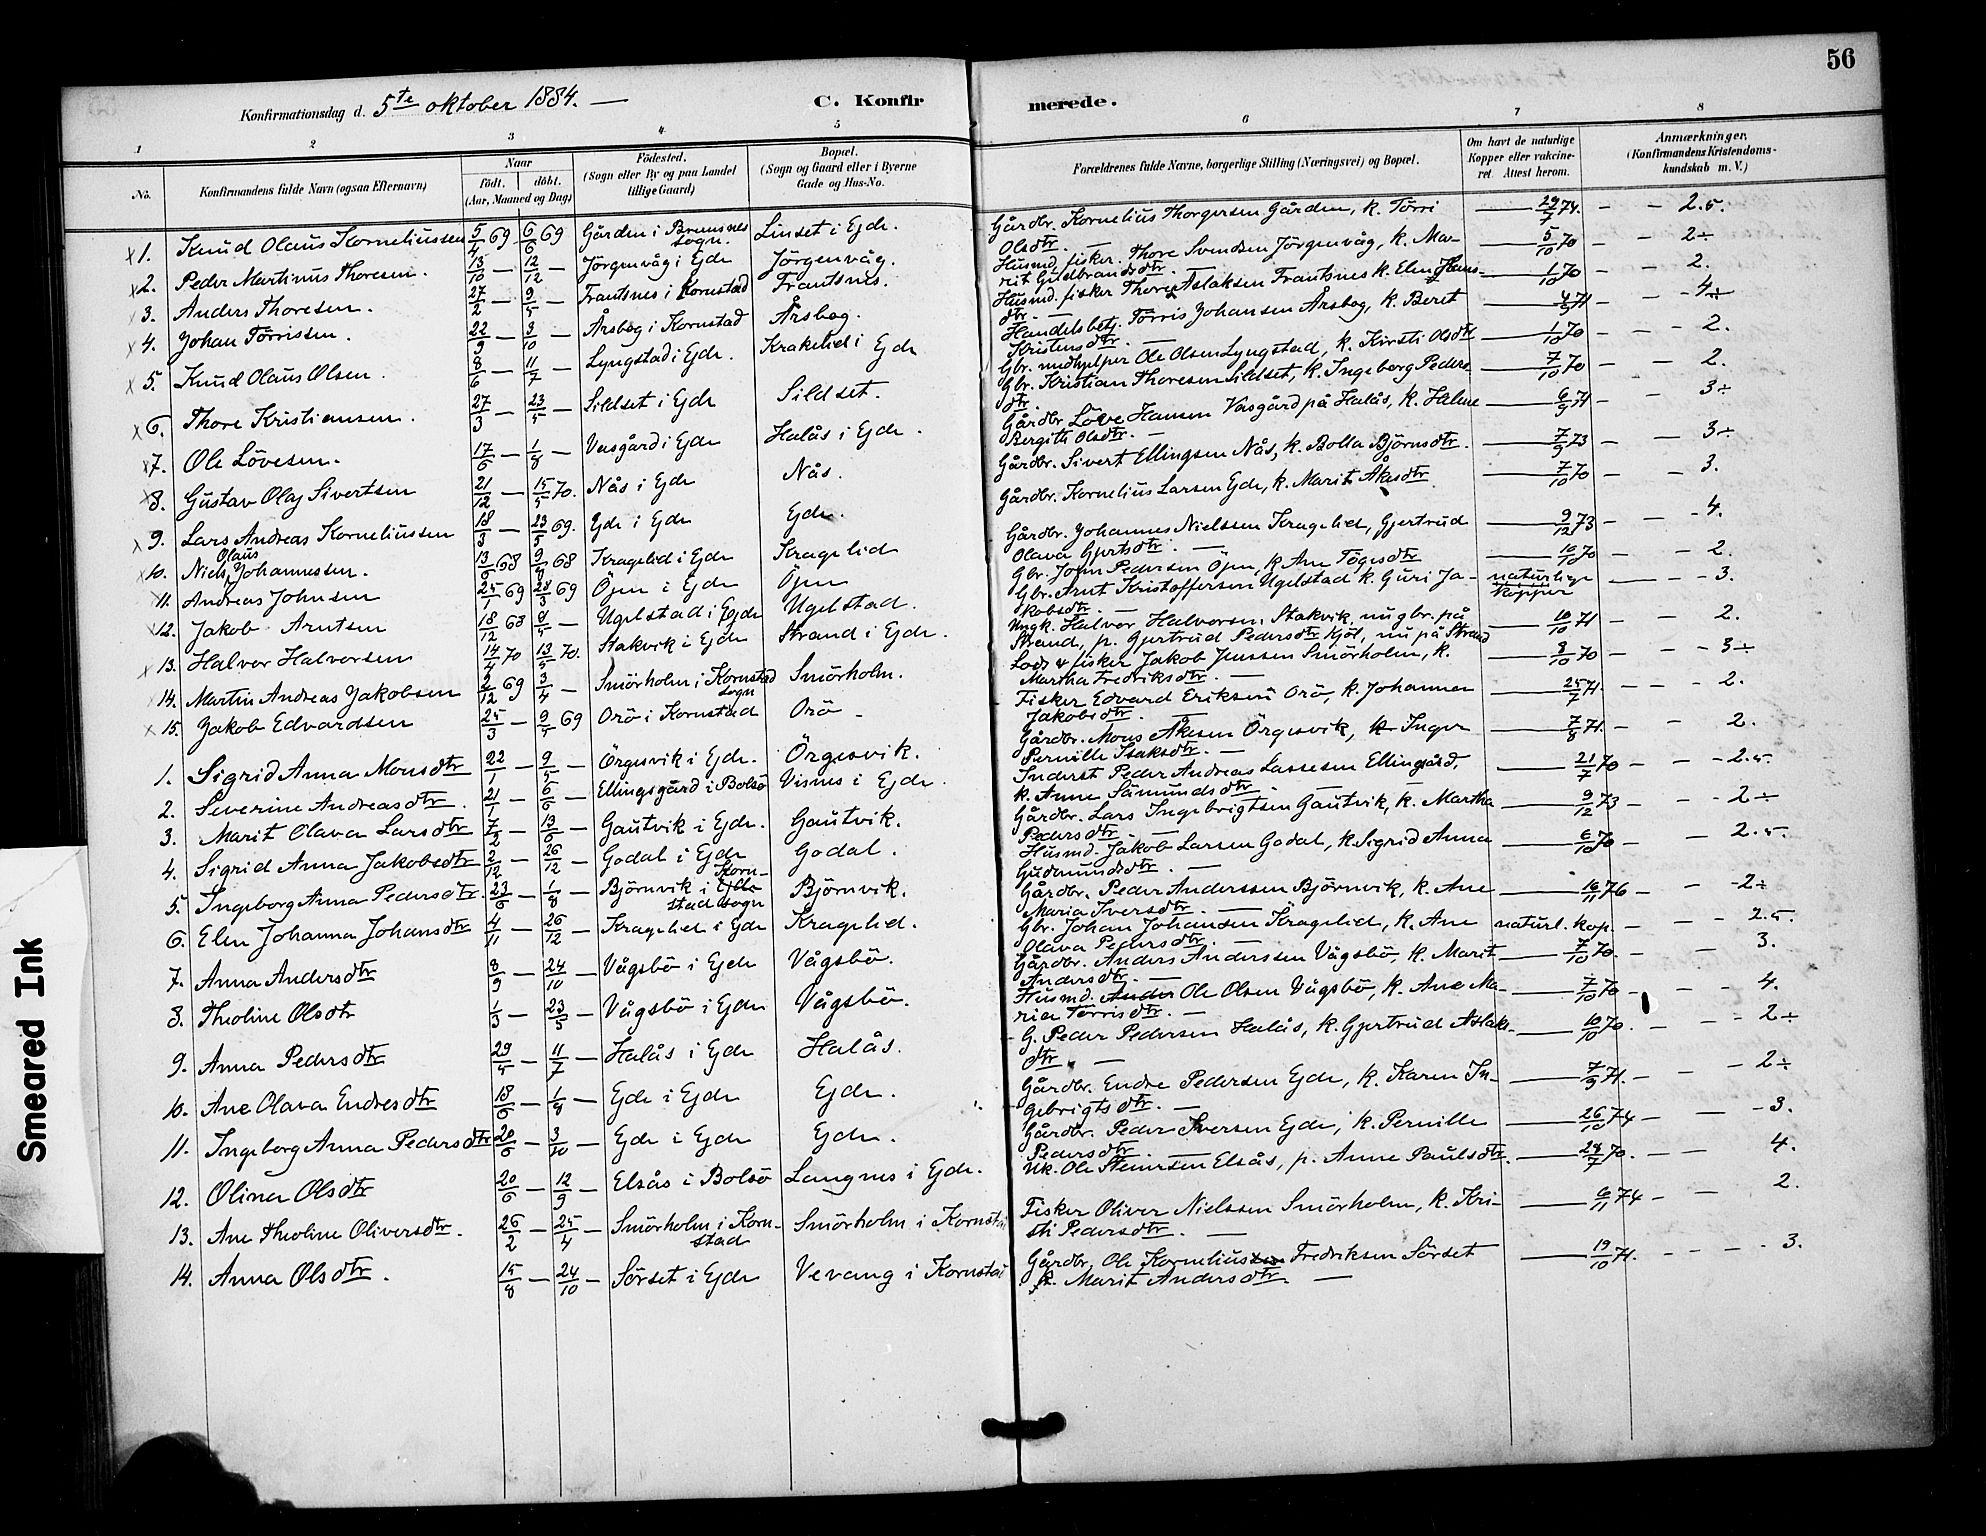 56
Konfirmationsdag d. 5te oktober 1884. —
C. Konfirmerede.
1 2 3 4 5 6 7 8
No. Konfirmandens fulde Navn (ogsaa Efternavn) Naar födt. döbt. (Aar, Maaned og Dag) Födested. (Sogn eller By og paa Landet tillige Gaard) Bopæl. (Sogn og Gaard eller i Byerne Gade og Hus-No. Forældrenes fulde Navne, borgerlige Stilling (Næringsvei) og Bopæl. Om havt de naturlige Kopper eller vakcineret. Attest herom. Anmærkninger. (Konfirmandens Kristendomskundskab m. V.)
1. Knud Olaus Korneliussen 5/4 69 6/6 69 Gården i Bremsnes sogn. Linset i Ejde. Gårdbr. Kornelius Thorgersen Gården, k. Törri Olsdtr. — 29/7 74. — — 2.5.
2. Peder Martinus Thoresen. 13/10 — 12/12 — Jörgenvåg i Ejde Jörgenvåg. Husmd. fisker. Thore Svendsen Jörgenvåg, k. Marit Guldbrandsdtr. — 5/10 70 — — 2÷
3. Anders Thoresen. 27/2 — 9/5 — Frantsnes i Kornstad Frantsnes. Husmd. fisker Thore Aslaksen Frantsnes k. Elen Hansdtr. — 1/10 70 — — 2.
4. Johan Törrissen. 22/9 — 3/10 — Årsbog i Kornstad Årsbog. Handelsbetj. Törris Johansen Årsbog, k. Beret Kristensdtr. — 4/9 71 — — 4÷
5. Knud Olaus Olsen. 8/6 — 11/7 — Lyngstad i Ejde. Krakelid i Ejde Gbr. medhjelper Ole Olsen Lyngstad, k. Kirsti Olsdtr 1/10 70 — — 2.
6. Thore Kristiansen. 27/3 — 23/5 — Sildset i Ejde Sildset. Gbr. Kristian Thoresen Sildset, k. Ingeborg Pedersdtr. 7/10 70 — — 2.
7. Ole Lövesen. 17/6 — 1/8 — Vasgård i Ejde Halås i Ejde. Gårdbr Löve Hansen Vasgård på Halås, k. Helene Bergitte Olsdtr. — 6/9 71 — — 3÷
8. Gustav Olaj Sivertsen 21/12 — 15/5 70. Nås i Ejde Nås. Gårdbr. Sivert Ellingsen Nås, k. Bolla Björnsdtr. 7/9 73 — — 3÷
9. Lars Andreas Korneliussen 18/3 — 23/5 69. Ejde i Ejde Ejde. Gårdbr. Kornelius Larsen Ejde, k. Marit Åkesdtr 7/10 70 — — 3.
10. Niels Olaus Johannessen. 13/6 68 9/8 68 Kragelid i Ejde Kragelid Gårdbr. Johannes Nielssen Kragelid, Gjertrud Olava Gjertsdtr. — 9/12 73 — — 4.
11. Andreas Johnsen 25/1 69 28/3 69 Öjen i Ejde Öjen Gbr. John Pedersen Öjen, k. Ane Tögesdtr 10/10 70 — — 2.
12. Jakob Arntsen 18/12 68 8/5 — Ugelstad i Ejde Ugelstad. Gbr. Arnt Kristoffersen Ugelstad k. Guri Jakobsdtr. — naturlige kopper — — 3.
13. Halvor Halvorsen 14/4 70 13/5 70. Stakvik i Ejde Strand i Ejde. Ungk. Halvor Halvorsen Stakvik, nu gbr. på Strand, p. Gjertrud Pedersdtr Kjöl, nu på Strand 10/10 71 — — 2.
14. Martin Andreas Jakobsen 2/12 69 3/4 — Smörholm i Kornstad sogn Smörholm. Lods & fisker Jakob Jenssen Smörholm, k. Martha Fredriksdtr. — 8/10 70 — — 3÷
15. Jakob Edvardsen 25/3 — 9/5 69 Orö i Kornstad Orö Fisker Edvard Eriksen Orö, k. Johanna Jakobsdtr. — 25/7 71. — — 2.
1. Sigrid Anna Monsdtr 22/1 — 9/5 — Örgesvik i Ejde. Örgesvik. Gårdbr. Mons Akesen Örgesvik, k. Inger Pernille Isaksdtr. — 7/8 71. — — 2.
2. Severine Andreasdtr. 21/1 — 6/6 — Ellingsgård i Bolsö Visnes i Ejde. Inderst Peder Andreas Lassesen Ellingsgård, k. Anne Sämundsdtr. — 21/7 70 — — 2.5.
3. Marit Olava Larsdtr 7/2 — 13/6 — Gautvik i Ejde. Gautvik. Gårdbr. Lars Ingebrigtsen Gautvik, k. Martha Pedersdtr. — 9/12 73 — — 2÷
4. Sigrid Anna Jakobsdtr 2/12 — 26/12 — Godal i Ejde Godal. Husmd. Jakob Larsen Godal, k. Sigrid Anna Gudmundsdtr. — 6/10 70 — — 2.5.
5. Ingeborg Anna Pedersdtr. 23/6 — 1/8 — Björnvik i Kornstad sogn Björnvik. Gårdbr. Peder Anderssen Björnvik, k. Ane Maria Iversdtr. — 16/11 76 — — 2÷
6. Elen Johanna Johansdtr 4/11 — 26/12 — Kragelid i Ejde Kragelid. Gbr. Johan Johansen Kragelid, k. Ane Olava Pedersdtr. — naturl. kop. — — 2.5.
7. Anna Andersdtr 8/9 — 24/10 — Vågsbö i Ejde Vågsbö. Gårdbr. Anders Anderssen Vågsbö, k. Marit Andersdtr. — 7/10 70. — — 3.
8. Theoline Olsdtr 1/3 — 23/5 — Vågsbö i Ejde Vågsbö. Husmd. Ole Olsen Vågsbö, k. Ane Maria Törrisdtr. — 7/10 70 — — 4.
9. Anna Pedersdtr 29/5 — 11/7 — Halås i Ejde Halås. G. Peder Pedersen Halås, k. Gjertrud Aslaksdtr — 10/10 70. — — 2÷
10. Ane Olava Endresdtr 18/6 — 1/9 — Ejde i Ejde Ejde. Gårdbr. Endre Pedersen Ejde, k. Karen Ingebrigtsdtr. — 7/9 71. — — 2÷
11. Ingeborg Anna Pedersdtr 20/6 — 3/10 — Ejde i Ejde Ejde. Gårdbr. Peder Iversen Ejde, k. Pernille Pedersdtr. — 26/10 74 — — 3.
12. Olina Olsdtr 20/6 — 12/9 — Elsås i Bolsö Langnes i Ejde. Uk. Ole Stenersen Elsås, p. Anne Paulsdtr. 28/7 70. — — 4.
13. Ane Theoline Oliversdtr. 26/2 — 25/4 — Smörholm i Kornstad Smörholm i Kornstad Fisker Oliver Nielssen Smörholm, k. Kristi Pedersdtr. — 6/11 74 — — 2.
14. Anna Olsdtr. 15/8 — 24/10 — Sörset i Ejde Vevang i Kornstad Gårdbr. Ole Kornelius Fredriksen Sörset k. Marit Andersdtr. — 19/10 71. — — 3.
Smeared Ink